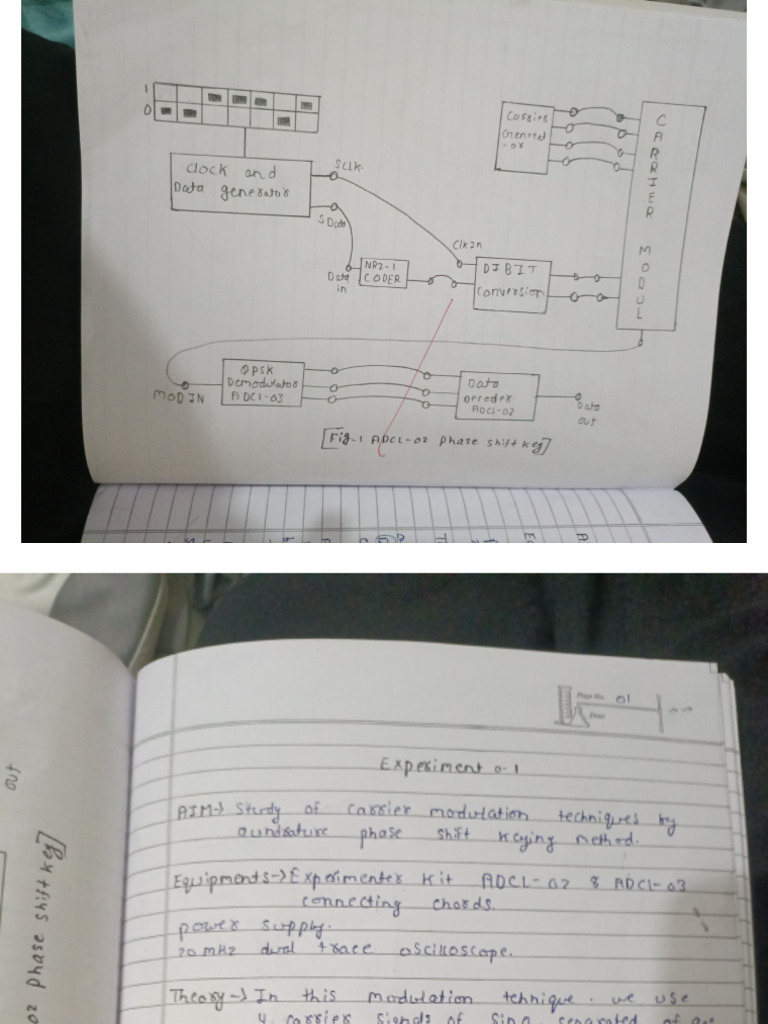 1
0
Clock and
Data generator
SClk
SData
Data
in
NRZ-1
CODER
Clk In
DIBIT
Conversion
Carrier
Generat
-or
CARRIER MODUL
MOD IN
QPSK
Demodulator
ADCL-03
Data
Decoder
ADCL-02
Data
out
[Fig-1 ADCL-02 phase shift key]
out
02 phase shift key]
Page No. 01
Date
Experiment 0.1
AIM→ Study of carrier modulation techniques by
qundrature phase shift keying method.
Equipments→ Experimenter kit ADCL-02 & ADCL-03
connecting chords.
power supply.
20 MHz dual trace oscilloscope.
Theory→ In this modulation tehnique. we use
4 carrier signals of sing separated of